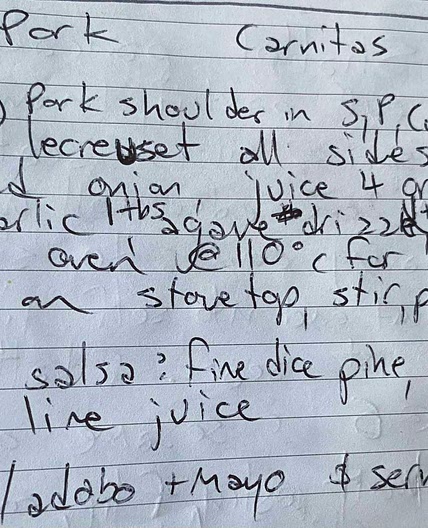 Pork Carnitas
) Pork shoulder in S, P, C
lecreuset all sides
d onion juice 4 or
arlic 1 tbs agave drizzle
oven @ 110°c for
on stove top, stir, p
salsa: fine dice pine,
lime juice
/ adobo + Mayo $ serv